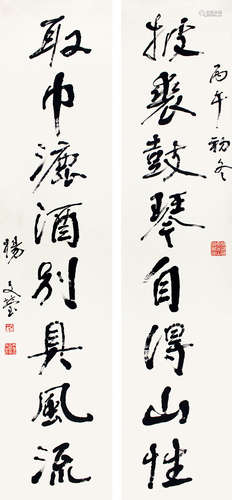 丙午初冬
裘鼓琴自得山性
取巾漉酒別具風流
楊文瑩